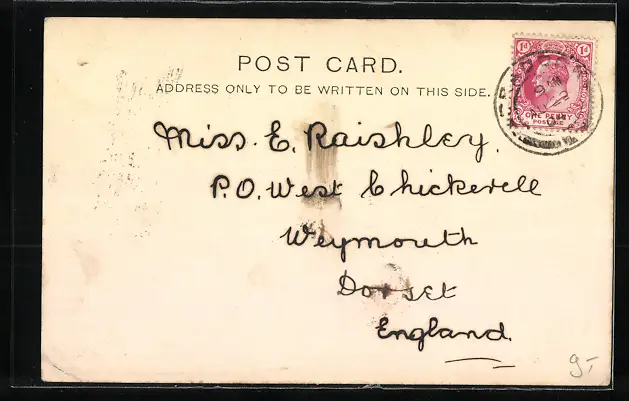 POST CARD.
ADDRESS ONLY TO BE WRITTEN ON THIS SIDE.
1d 1d
ONE PENNY
POSTAGE
Miss. E. Raishley.
P.O. West Chickerell
Weymouth
Dorset
England.
9,-